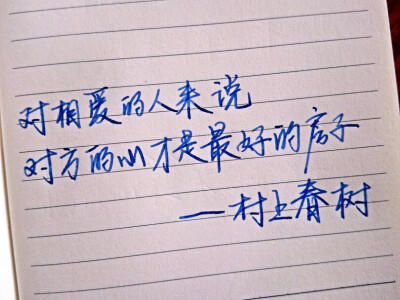 对相爱的人来说
对方的心才是最好的房子
——村上春树